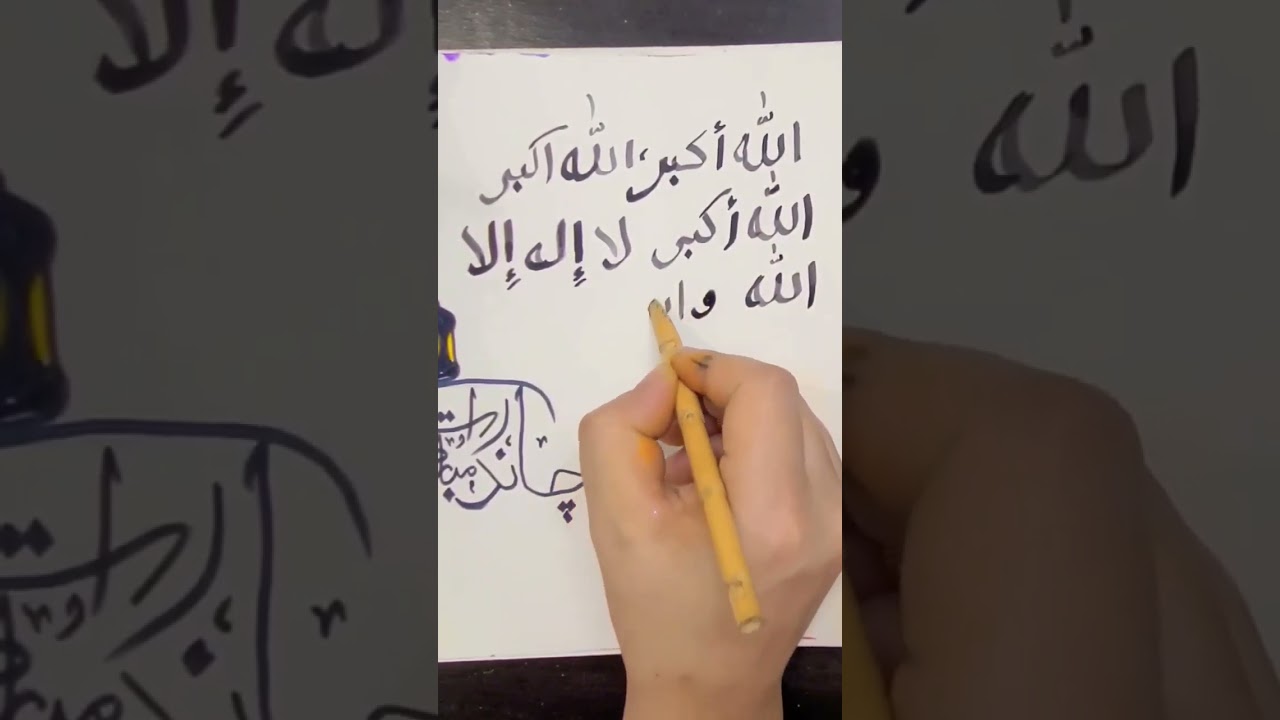 الله أكبر، الله اكبر
الله أكبر لا إله إلا
الله وا
چاند رات
مبا